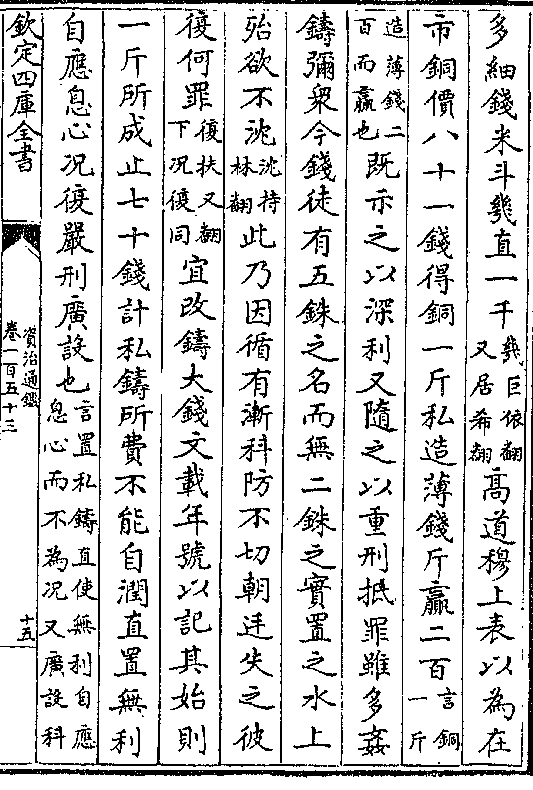 多細錢米斗幾直一千幾巨依翻又居希翻高道穆上表以為在
市銅價八十一錢得銅一斤私造薄錢斤贏二百言銅一斤
造薄錢二百而贏也既示之以深利又隨之以重刑抵罪雖多姦
鑄彌衆今錢徒有五銖之名而無二銖之實置之水上
殆欲不沈沈持林翻此乃因循有漸科防不切朝廷失之彼
復何罪復扶又翻下况復同宜改鑄大錢文載年號以記其始則
一斤所成止七十錢計私鑄所費不能自潤直置無利
自應息心况復嚴刑廣設也言置私鑄直使無利自應息心而不為况又廣設科
欽定四庫全書
資治通鑑
卷一百五十三
十五